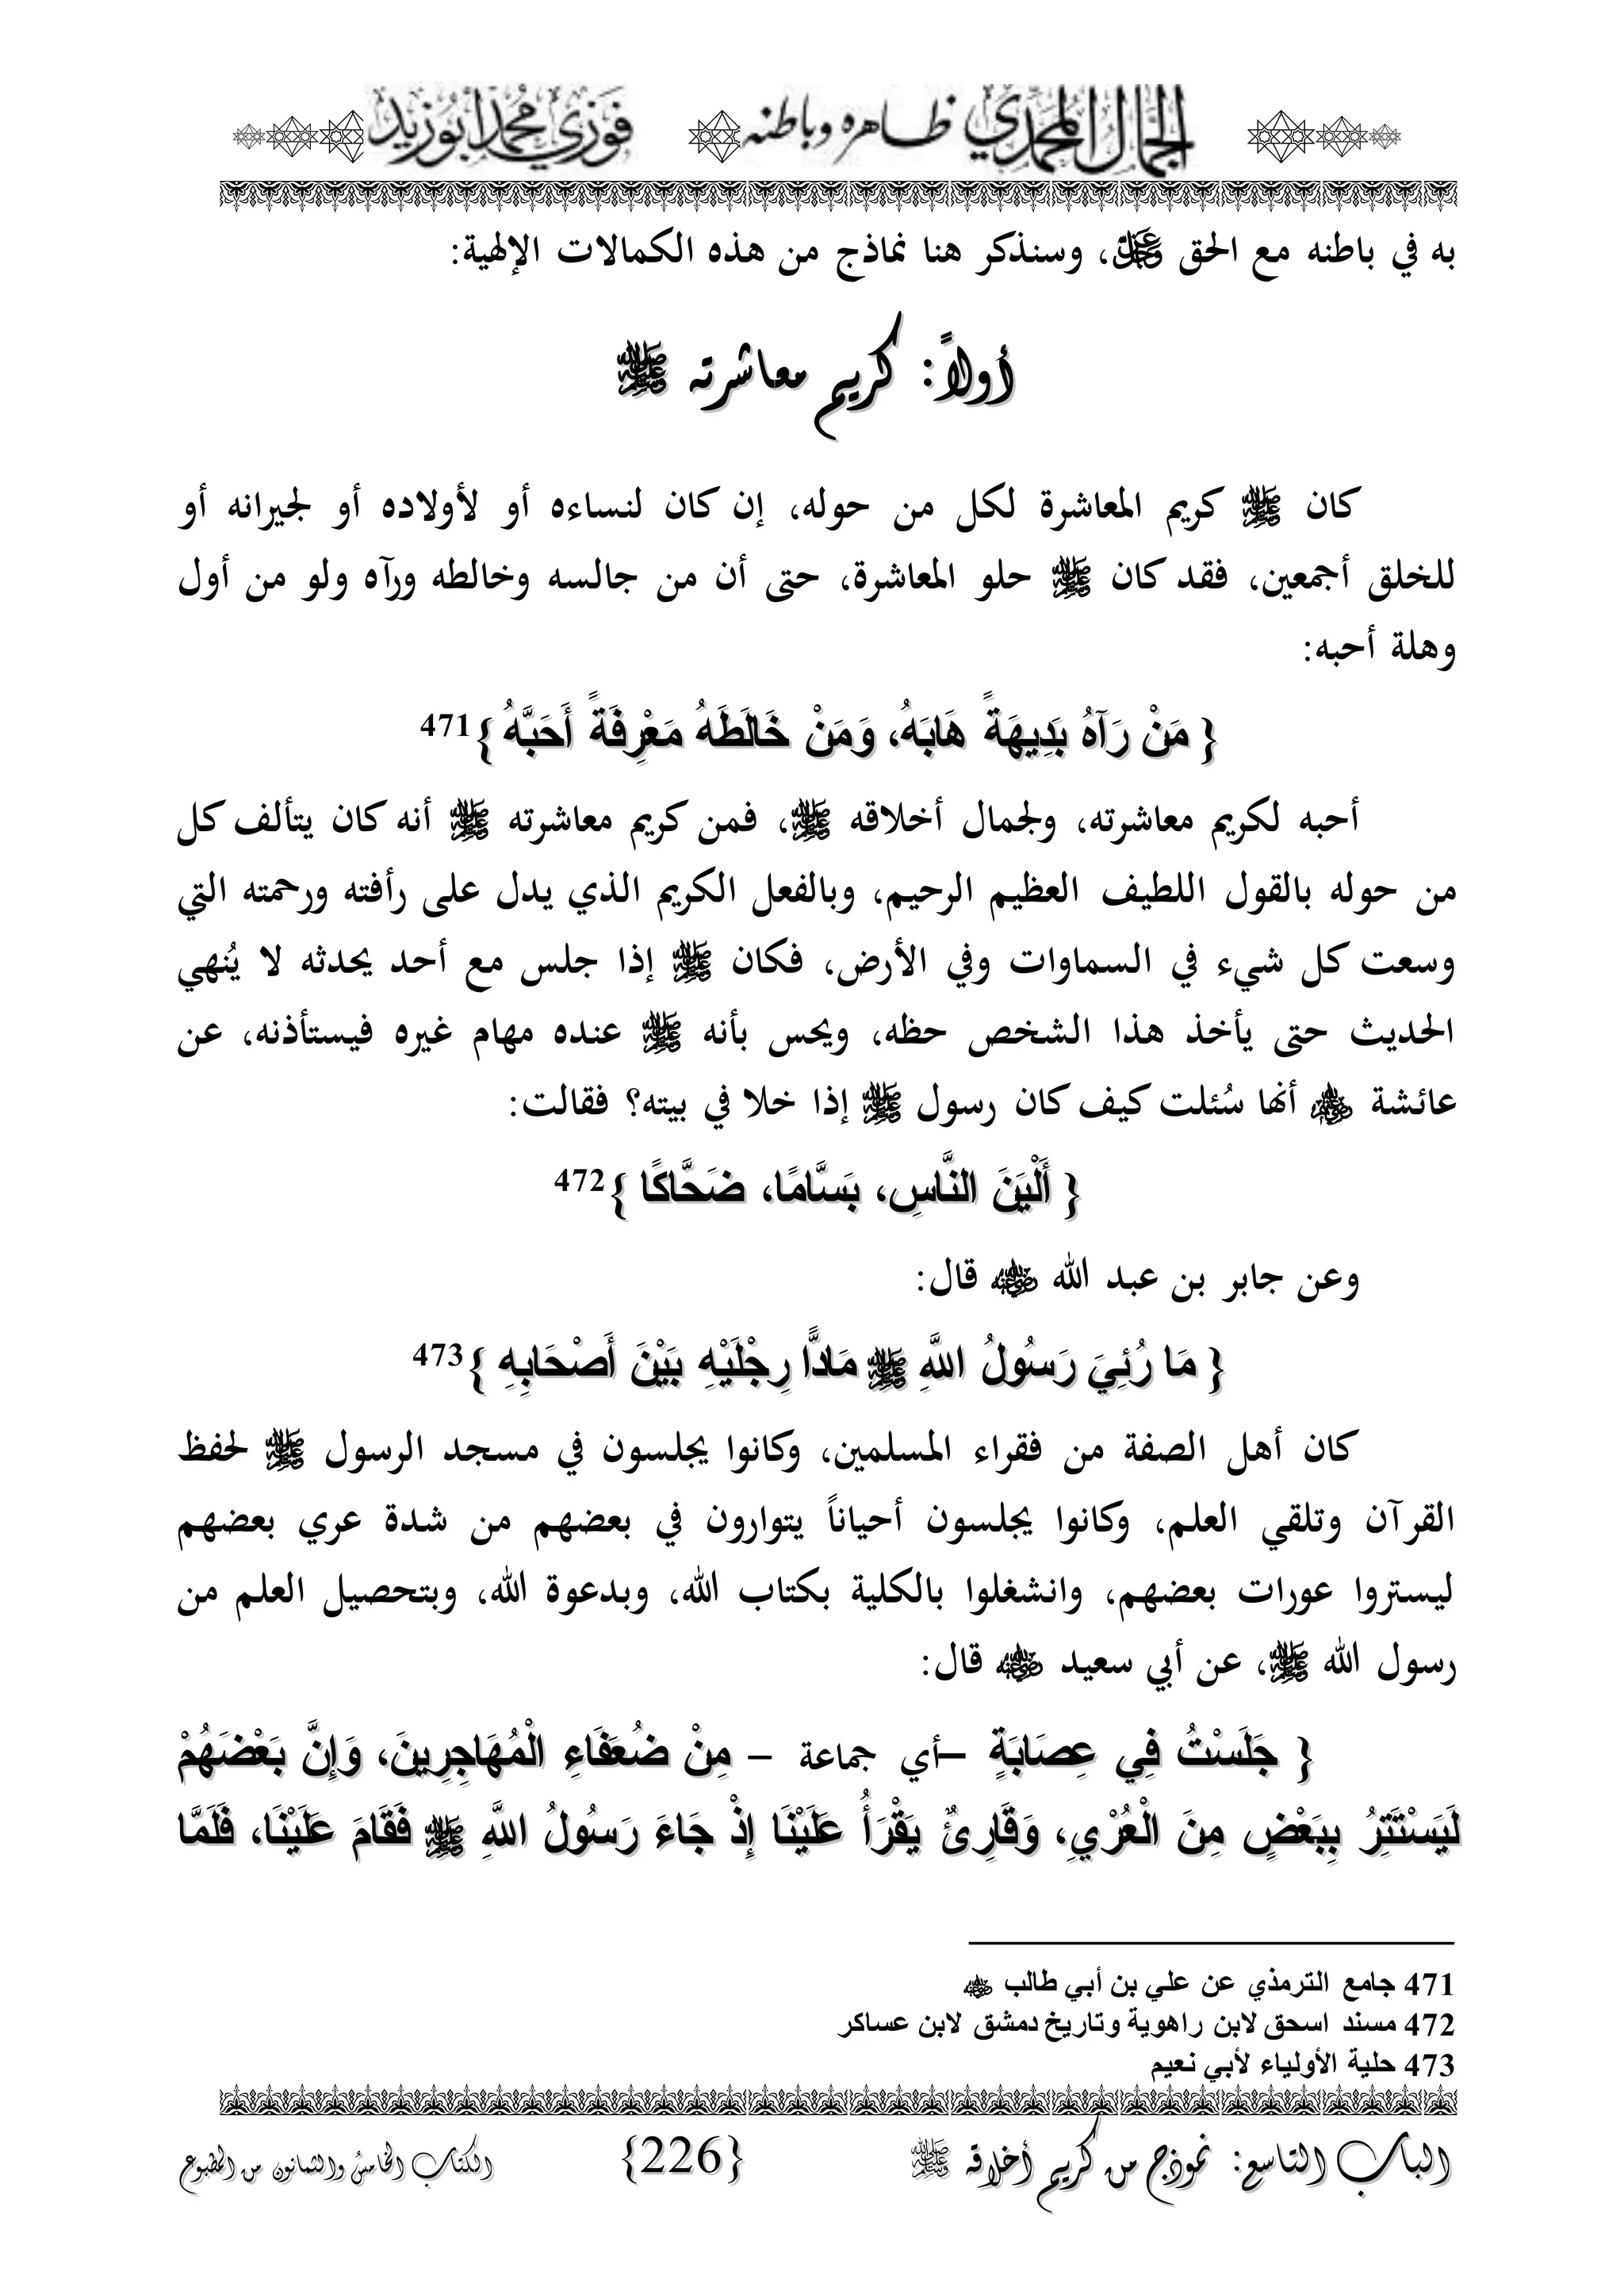 الجمال المحمدي ظاهره وباطنه فوزي محمد أبوزيد
به في باطنه مع الحق ﷿، وسنذكر هنا نماذج من هذه الكمالات الإلهية:
أولاً: كريم معاشرته ﷺ
كان ﷺ كريم المعاشرة لكل من حوله، إن كان لنساءه أو لأولاده أو لجيرانه أو
للخلق أجمعين، فقد كان ﷺ حلو المعاشرة، حتى أن من جالسه وخالطه ورآه ولو من أول
وهلة أحبه:
{ مَنْ رَآهُ بَدِيهَةً هَابَهُ، وَمَنْ خَالَطَهُ مَعْرِفَةً أَحَبَّهُ }471
أحبه لكريم معاشرته، ولجمال أخلاقه ﷺ، فمن كريم معاشرته ﷺ أنه كان يتألف كل
من حوله بالقول اللطيف العظيم الرحيم، وبالفعل الكريم الذي يدل على رأفته ورحمته التي
وسعت كل شيء في السماوات وفي الأرض، فكان ﷺ إذا جلس مع أحد يحدثه لا يُنهي
الحديث حتى يأخذ هذا الشخص حظه، ويحس بأنه ﷺ عنده مهام غيره فيستأذنه، عن
عائشة رضي الله عنها أنها سُئلت كيف كان رسول ﷺ إذا خلا في بيته؟ فقالت:
{ أَلْيَنَ النَّاسِ، بَسَّامًا، ضَحَّاكًا }472
وعن جابر بن عبد الله رضي الله عنه قال:
{ مَا رُئِيَ رَسُولُ اللَّهِ ﷺ مَادًّا رِجْلَيْهِ بَيْنَ أَصْحَابِهِ }473
كان أهل الصفة من فقراء المسلمين، وكانوا يجلسون في مسجد الرسول ﷺ لحفظ
القرآن وتلقي العلم، وكانوا يجلسون أحياناً يتوارون في بعضهم من شدة عري بعضهم
ليستروا عورات بعضهم، وانشغلوا بالكلية بكتاب الله، وبدعوة الله، وبتحصيل العلم من
رسول الله ﷺ، عن أبي سعيد رضي الله عنه قال:
{ جَلَسْتُ فِي عِصَابَةٍ –أي جماعة – مِنْ ضُعَفَاءِ الْمُهَاجِرِينَ، وَإِنَّ بَعْضَهُمْ
لَيَسْتَتِرُ بِبَعْضٍ مِنَ الْعُرْيِ، وَقَارِئٌ يَقْرَأُ عَلَيْنَا إِذْ جَاءَ رَسُولُ اللَّهِ ﷺ فَقَامَ عَلَيْنَا، فَلَمَّا
471 جامع الترمذي عن علي بن أبي طالب رضي الله عنه
472 مسند اسحق لابن راهوية وتاريخ دمشق لابن عساكر
473 حلية الأولياء لأبي نعيم
الباب التاسع: نموذج من كريم أخلاقه ﷺ {226} الكتاب الخامس والثمانون من المطبوع